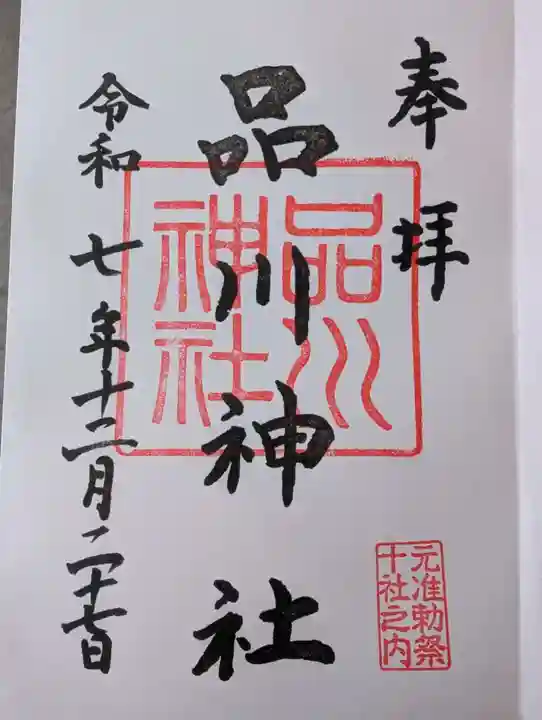 奉拝
品川神社
品川
神社
令和七年十二月二十七日
元准勅祭
十社之内